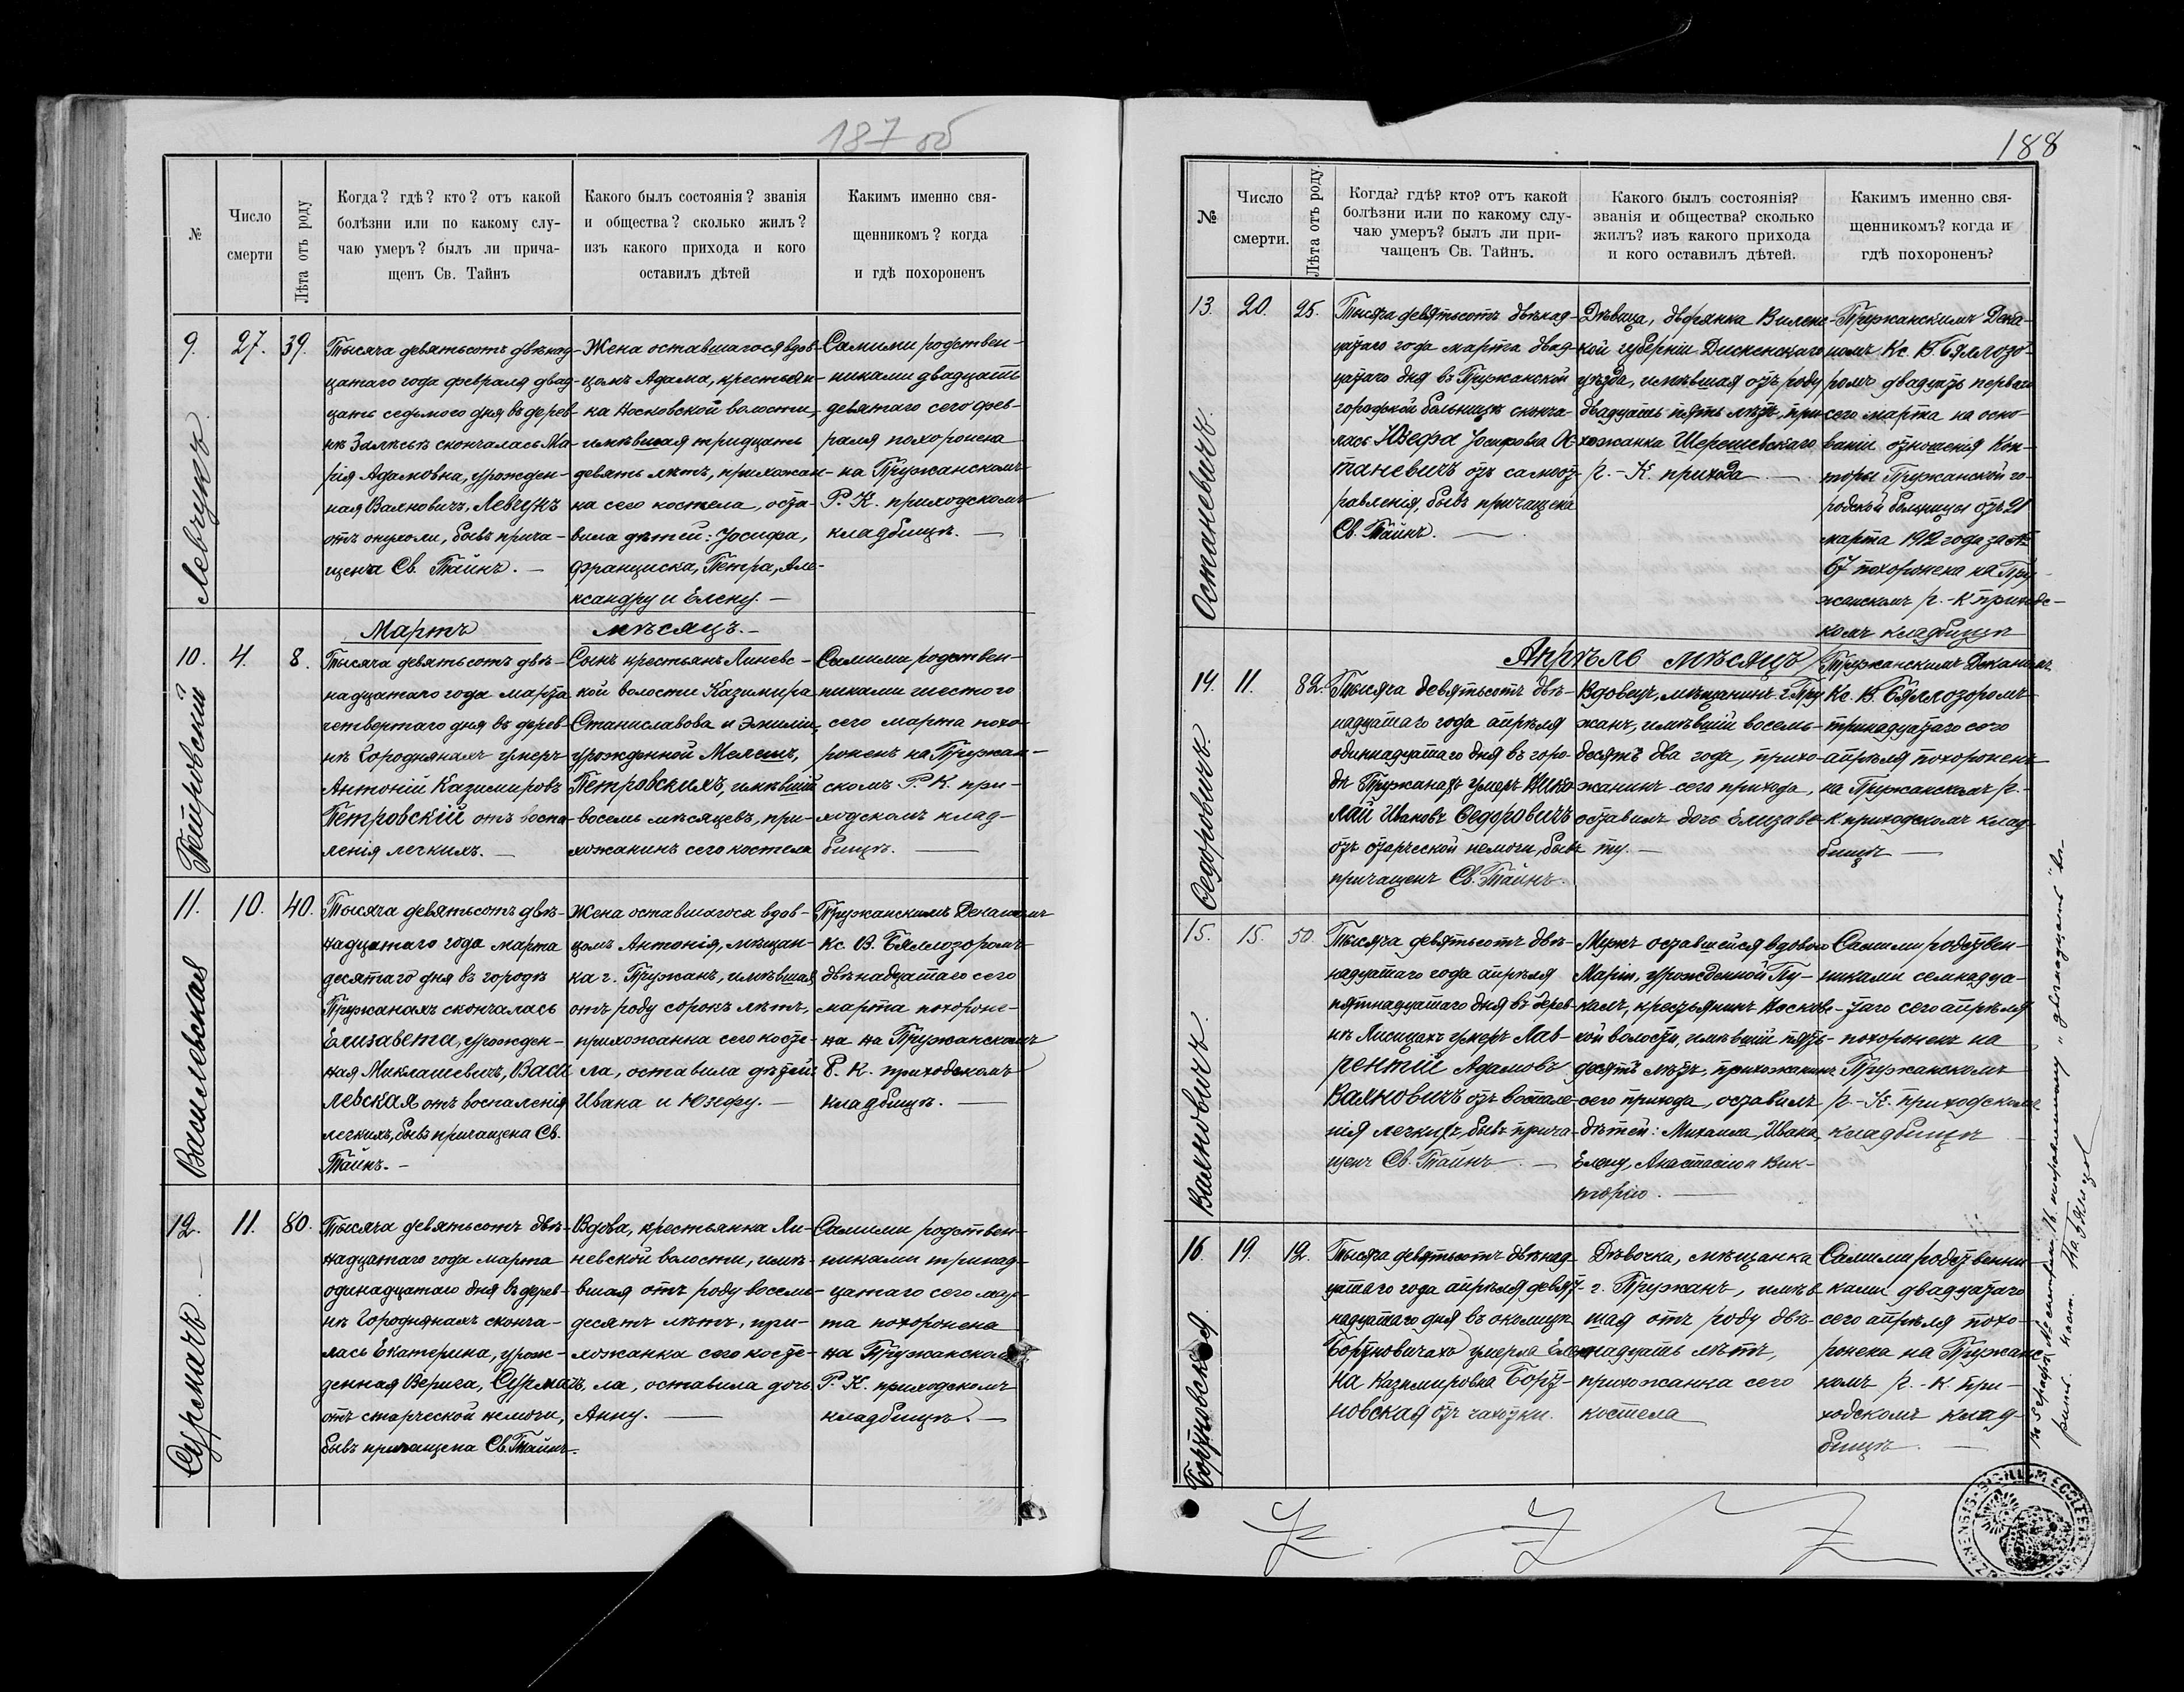 187 об
№
Число
смерти
Лѣта отъ роду
Когда? гдѣ? кто? отъ какой
болѣзни или по какому слу-
чаю умеръ? былъ ли прича-
щенъ Св. Тайнъ
Какого былъ состоянія? званія
и общества? сколько жилъ?
изъ какого прихода и кого
оставилъ дѣтей
Какимъ именно свя-
щенникомъ? когда
и гдѣ похороненъ
Левчукъ
9.
27.
39.
Тысяча девятьсотъ двѣнад-
цатаго года февраля двад-
цать седьмого дня въ дерев-
нѣ Залѣсьѣ скончалась Ма-
рія Адамовна, урожден-
ная Валновичъ, Левчукъ
отъ опухоли, бывъ прича-
щена Св. Тайнъ. —
Жена оставшагося вдов-
цомъ Адама, крестьян-
ка Носковской волости,
имѣвшая тридцать
девять лѣтъ, прихожан-
ка сего костела, оста-
вила дѣтей: Іосифа,
Франциска, Петра, Але-
ксандру и Елену. —
Самими родствен-
никами двадцать
девятаго сего фев-
раля похоронена
на Пружанскомъ
Р. К. приходскомъ
кладбищѣ. —
Мартъ мѣсяцъ. —
Петровскій
10.
4.
8.
Тысяча девятьсотъ двѣ-
надцатаго года марта
четвертаго дня въ дерев-
нѣ Городнянахъ умеръ
Антоній Казимировъ
Петровскій отъ воспа-
ленія легкихъ. —
Сынъ крестьянъ Линевс-
кой волости Казимира
Станиславова и Эмиліи,
урожденной Мелешъ,
Петровскихъ, имѣвшій
восемь мѣсяцевъ, при-
хожанинъ сего костела
Самими родствен-
никами шестого
сего марта похо-
роненъ на Пружан-
скомъ Р. К. при-
ходскомъ клад-
бищѣ. —
Василевская
11.
10.
40.
Тысяча девятьсотъ двѣ-
надцатаго года марта
десятаго дня въ городѣ
Пружанахъ скончалась
Елизавета, урожден-
ная Миклашевичъ, Васи
левская отъ воспаленія
легкихъ, бывъ причащена Св.
Тайнъ. —
Жена оставшагося вдов-
цомъ Антонія, мѣщан-
ка г. Пружанъ, имѣвшая
отъ роду сорокъ лѣтъ,
прихожанка сего косте-
ла, оставила дѣтей:
Ивана и Юзефу. —
Пружанскимъ Деканомъ
Кс. В. Бяллозоромъ
двѣнадцатаго сего
марта похороне-
на на Пружанскомъ
Р. К. приходскомъ
кладбищѣ. —
Сурмачъ
12.
11.
80.
Тысяча девятьсотъ двѣ-
надцатаго года марта
одинадцатаго дня въ дерев-
нѣ Городнянахъ сконча-
лась Екатерина, урож-
денная Верига, Сурмачъ,
отъ старческой немочи,
бывъ причащена Св. Тайнъ.
Вдова, крестьянка Ли-
невской волости, имѣ-
вшая отъ роду восемь-
десятъ лѣтъ, при-
хожанка сего косте-
ла, оставила дочь
Анну. —
Самими родствен-
никами тринад-
цатаго сего мар-
та похоронена
на Пружанскомъ
Р. К. приходскомъ
кладбищѣ. —
188
№
Число
смерти.
Лѣта отъ роду.
Когда? гдѣ? кто? отъ какой
болѣзни или по какому слу-
чаю умеръ? былъ ли при-
чащенъ Св. Тайнъ.
Какого былъ состоянія?
званія и общества? сколько
жилъ? изъ какого прихода
и кого оставилъ дѣтей.
Какимъ именно свя-
щенникомъ? когда и
гдѣ похороненъ?
Останевичъ.
13.
20.
25.
Тысяча девятьсотъ двѣнад-
цатаго года марта двад-
цатаго дня въ Пружанской
городской больницѣ сконча-
лась Юзефа Іосифовна Ос-
таневичъ отъ самоот-
равленія, бывъ причащена
Св. Тайнъ. —
Дѣвица, дворянка Виленс-
кой губерніи Дисненскаго
уѣзда, имѣвшая отъ роду
двадцать пять лѣтъ, при-
хожанка Шерешевскаго
р. - К. прихода. —
Пружанскимъ Дека-
номъ Кс. В. Бяллозо-
ромъ двадцать перваго
сего марта на осно-
ваніи отношенія Кон-
торы Пружанской го-
родской больницы отъ 21
марта 1912 года за №
67 похоронена на Пру-
жанскомъ р. - К приходс-
комъ кладбищѣ
Апрѣль мѣсяцъ
Ѳедоровичъ.
14.
11.
82.
Тысяча девятьсотъ двѣ-
надцатаго года апрѣля
одиннадцатаго дня въ горо-
дѣ Пружанахъ умеръ Нико
лай Ивановъ Ѳедоровичъ
отъ старческой немочи, бывъ
причащенъ Св. Тайнъ.
Вдовецъ, мѣщанинъ г. Пру
жанъ, имѣвшій восемь-
десятъ два года, прихо-
жанинъ сего прихода,
оставилъ дочь Елизаве-
ту. —
Пружанскимъ Деканомъ
Кс. В. Бяллозоромъ
тринадцатаго сего
апрѣля похороненъ
на Пружанскомъ р.-
К. приходскомъ клад-
бищѣ —
Валновичъ.
15.
15.
50.
Тысяча девятьсотъ двѣ-
надцатаго года апрѣля
пятнадцатаго дня въ дерев-
нѣ Лисицахъ умеръ Лав-
рентій Адамовъ
Валновичъ отъ воспале-
нія легкихъ, бывъ прича-
щенъ Св. Тайнъ. —
Мужъ оставшейся вдовою
Маріи, урожденной Пу-
каль, крестьянинъ Носковс-
кой волости, имѣвшій пять-
десятъ лѣтъ, прихожанинъ
сего прихода, оставилъ
дѣтей: Михаила, Ивана,
Елену, Анастасію и Вик-
торію. —
Самими родствен-
никами семнадца-
таго сего апрѣля
похороненъ на
Пружанскомъ
р. - К. приходскомъ
кладбищѣ
Бортновская
16.
19.
12.
Тысяча девятьсотъ двѣнад-
цатаго года апрѣля девят-
надцатаго дня въ околицѣ
Бортновичахъ умерла Еле-
на Казимировна Борт-
новская отъ чахотки.
Дѣвочка, мѣщанка
г. Пружанъ, имѣв
шая отъ роду двѣ-
надцать лѣтъ,
прихожанка сего
костела
Самими родственни-
ками двадцатаго
сего апрѣля похо-
ронена на Пружанс-
комъ р. - К. при-
ходскомъ клад-
бищѣ. —